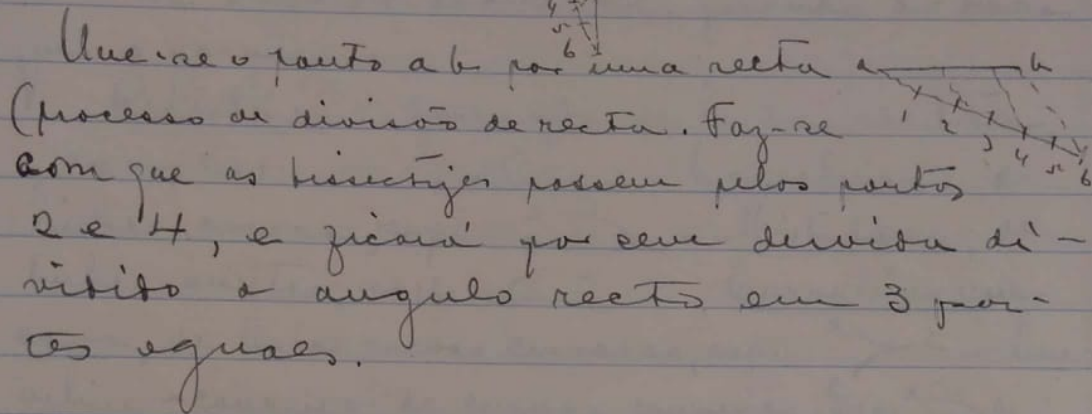 4
5
6
Une-se o ponto a b por uma recta a b
(processo de divisão de recta. Faz-se 1 2 3 4 5 6
com que as bissectrizes passem pelos pontos
2 e 4, e ficará por sem duvida di-
vidido o angulo recto em 3 par-
tes eguaes.